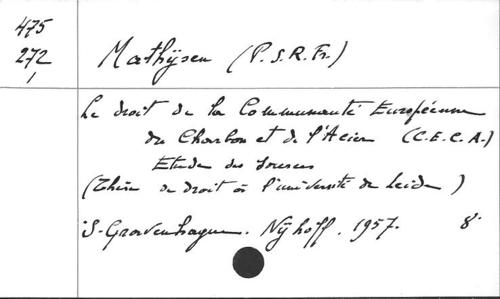 475
272
1
Mathÿsen (P.S.R.Fr.)
Le droit de la Communauté Européenne
du Charbon et de l'Acier (C.E.C.A.)
Etude des sources
(Thèse de droit à l'université de Leide)
's-Gravenhague. Nÿhoff. 1957. 8°